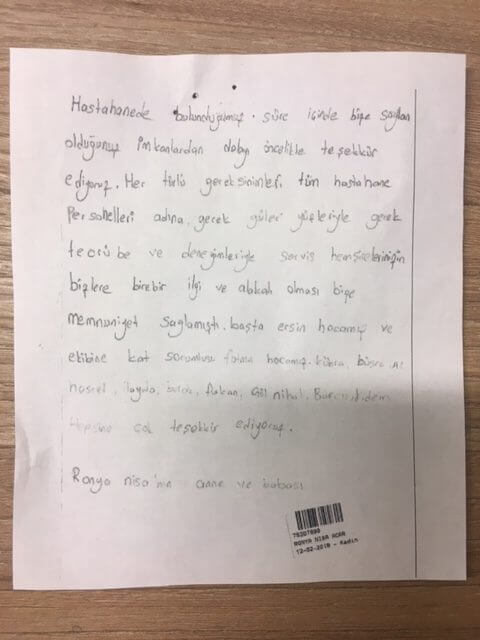 Hastahanede bulunduğumuz. süre içinde bize sağlan
olduğunuz imkanlardan dolayı öncelikle teşekkür
ediyoruz. Her türlü gereksinimleri tüm hastahane
Personelleri adına, gerek güler yüzleriyle gerek
tecrübe ve deneyimleriyle servis hemşirelerinizin
bizlere birebir ilgi ve alakalı olması bize
memnuniyet sağlamıştı. başta ersin hocamız ve
ekibine kat sorumlusu fatma hocamız. kübra, büşra,
ilayda, burak, furkan, Gül nihal, Burcu, didem
Hepsine çok teşekkür ediyoruz.
Ronya nisa'nın anne ve babası
75207690
RONYA NISA ACAR
12-02-2019 - Kadın